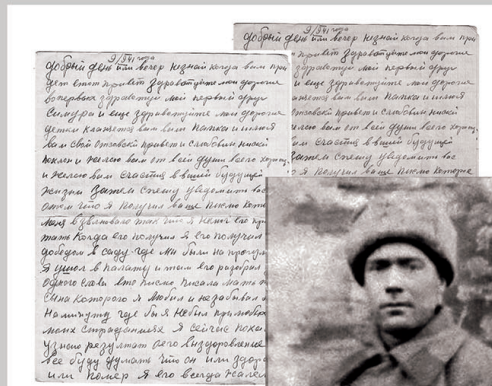 9/VII года
добрый день или вечер незнай когда вам при
дет етот привет здравствуйте мои дорогие
вопервых здравствуй мой первый друг
Симура и еще здравствуйте мои дорогие
детки кланяетца вам ваш папка и шлет
вам свой отцовский привет и слюбовью низкой
желаю вам от всей души всего хорош.
и желаю вам счастия в вашей будущей
жизни Затем спешу уведомить вас
отом что я получил ваше писмо которое
меня взволновало так что я немог его
тать когда его получил я его
в саду где мы были на прогул
Я ушол в палату и там его разобрал
одного слова ето писмо писала мать
сына которого я любил и незабывал
наминуту где бы я небыл при любых
моих страданиях я сейчас пока
узнаю результат его виздоровление
все буду думать что он или здоро
или помер я его всегда жалел
9/VII года
добрый день или вечер незнай когда вам при
привет здравствуйте мои дорогие
здравствуй мой первый друг
и еще здравствуйте мои дорогие
кланяетца вам ваш папка и шлет
отцовский привет и слюбовью низкой
желаю вам от всей души всего хорош.
вам счастия в вашей будущей
Затем спешу уведомить вас
что я получил ваше писмо которое